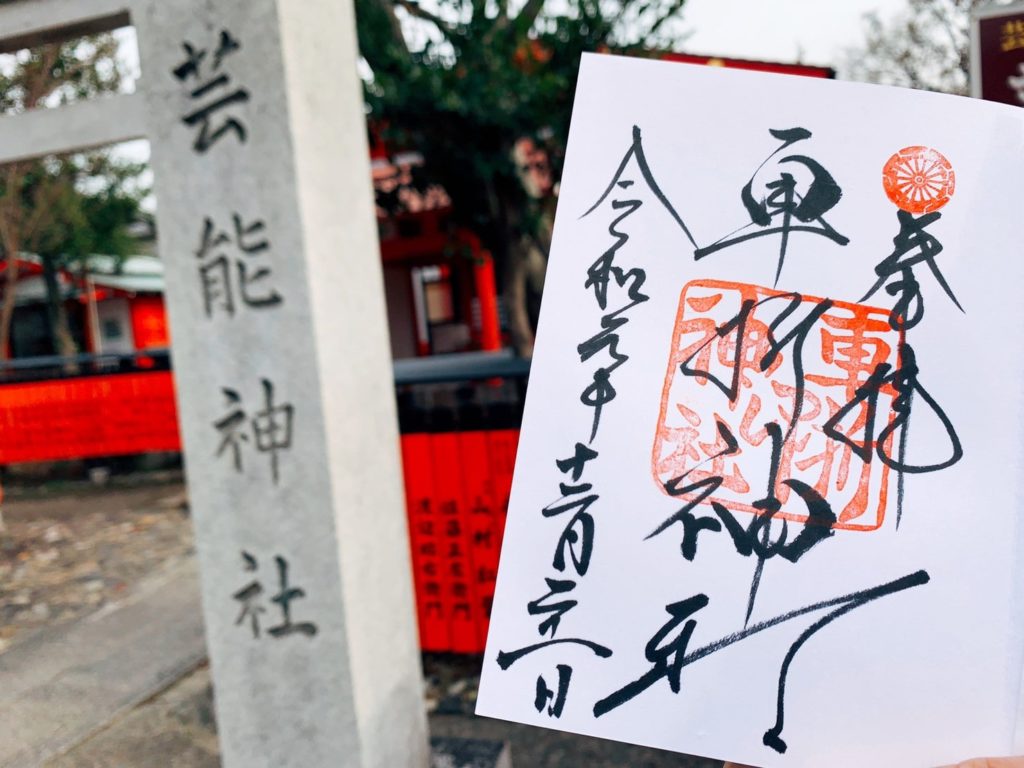 芸能神社
奉拝
車折神社
令和元年十二月二十一日
車折
神社
山村